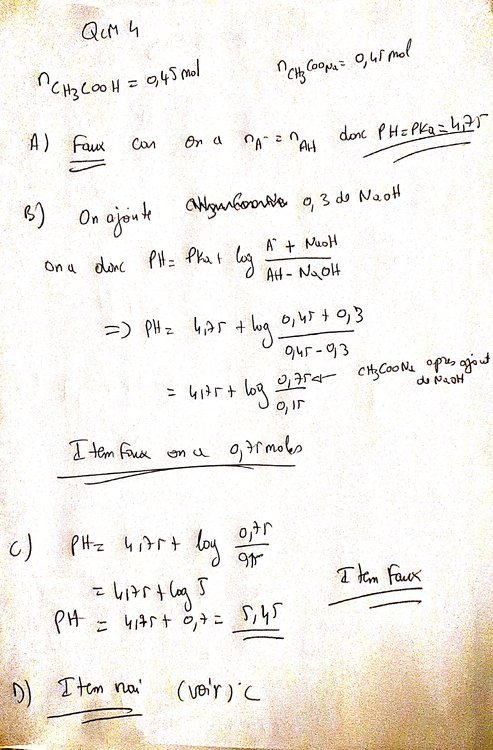 QCM 4
nCH3COOH = 0,45 mol
nCH3COONa = 0,45 mol
A) Faux car on a nA- = nAH donc PH=PKa=4,75
B) On ajoute 0,3 de NaOH
on a donc PH= PKa+ log A- + NaOH / AH - NaOH
=> PH= 4,75 + log 0,45 + 0,3 / 0,45 - 0,3
= 4,75 + log 0,75 / 0,15 ← CH3COONa apres ajout de NaOH
Item Faux on a 0,75 moles
C) PH= 4,75 + log 0,75 / 0,15
= 4,75 + log 5
PH = 4,75 + 0,7 = 5,45
Item Faux
D) Item vrai (voir) C